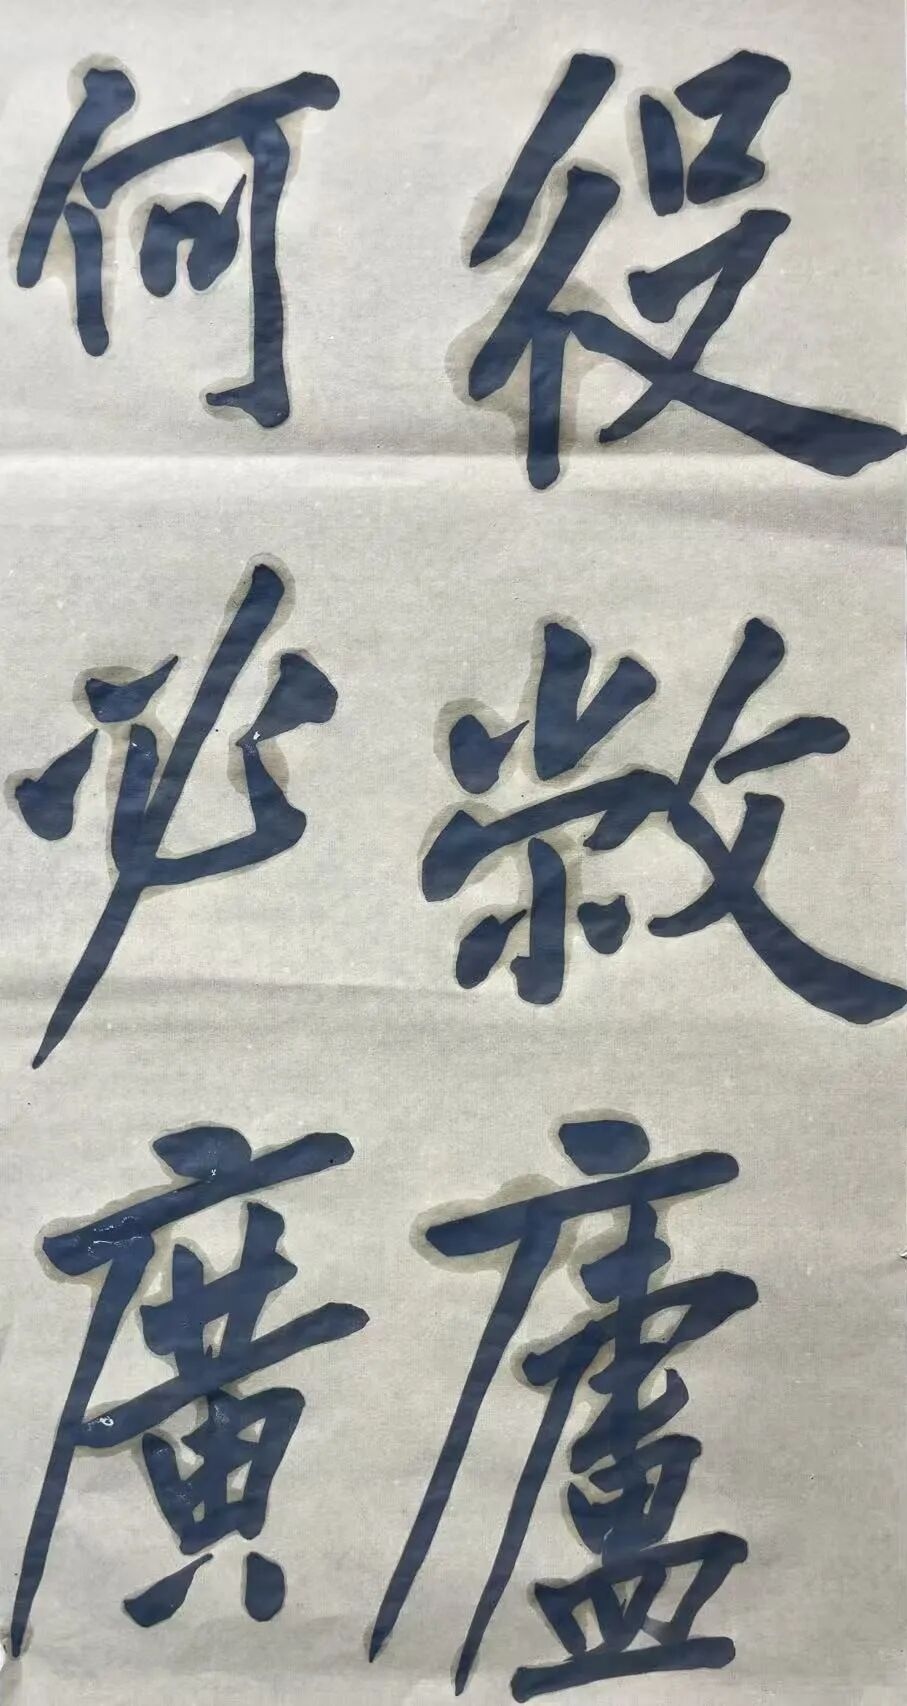 役敝廬
何必廣